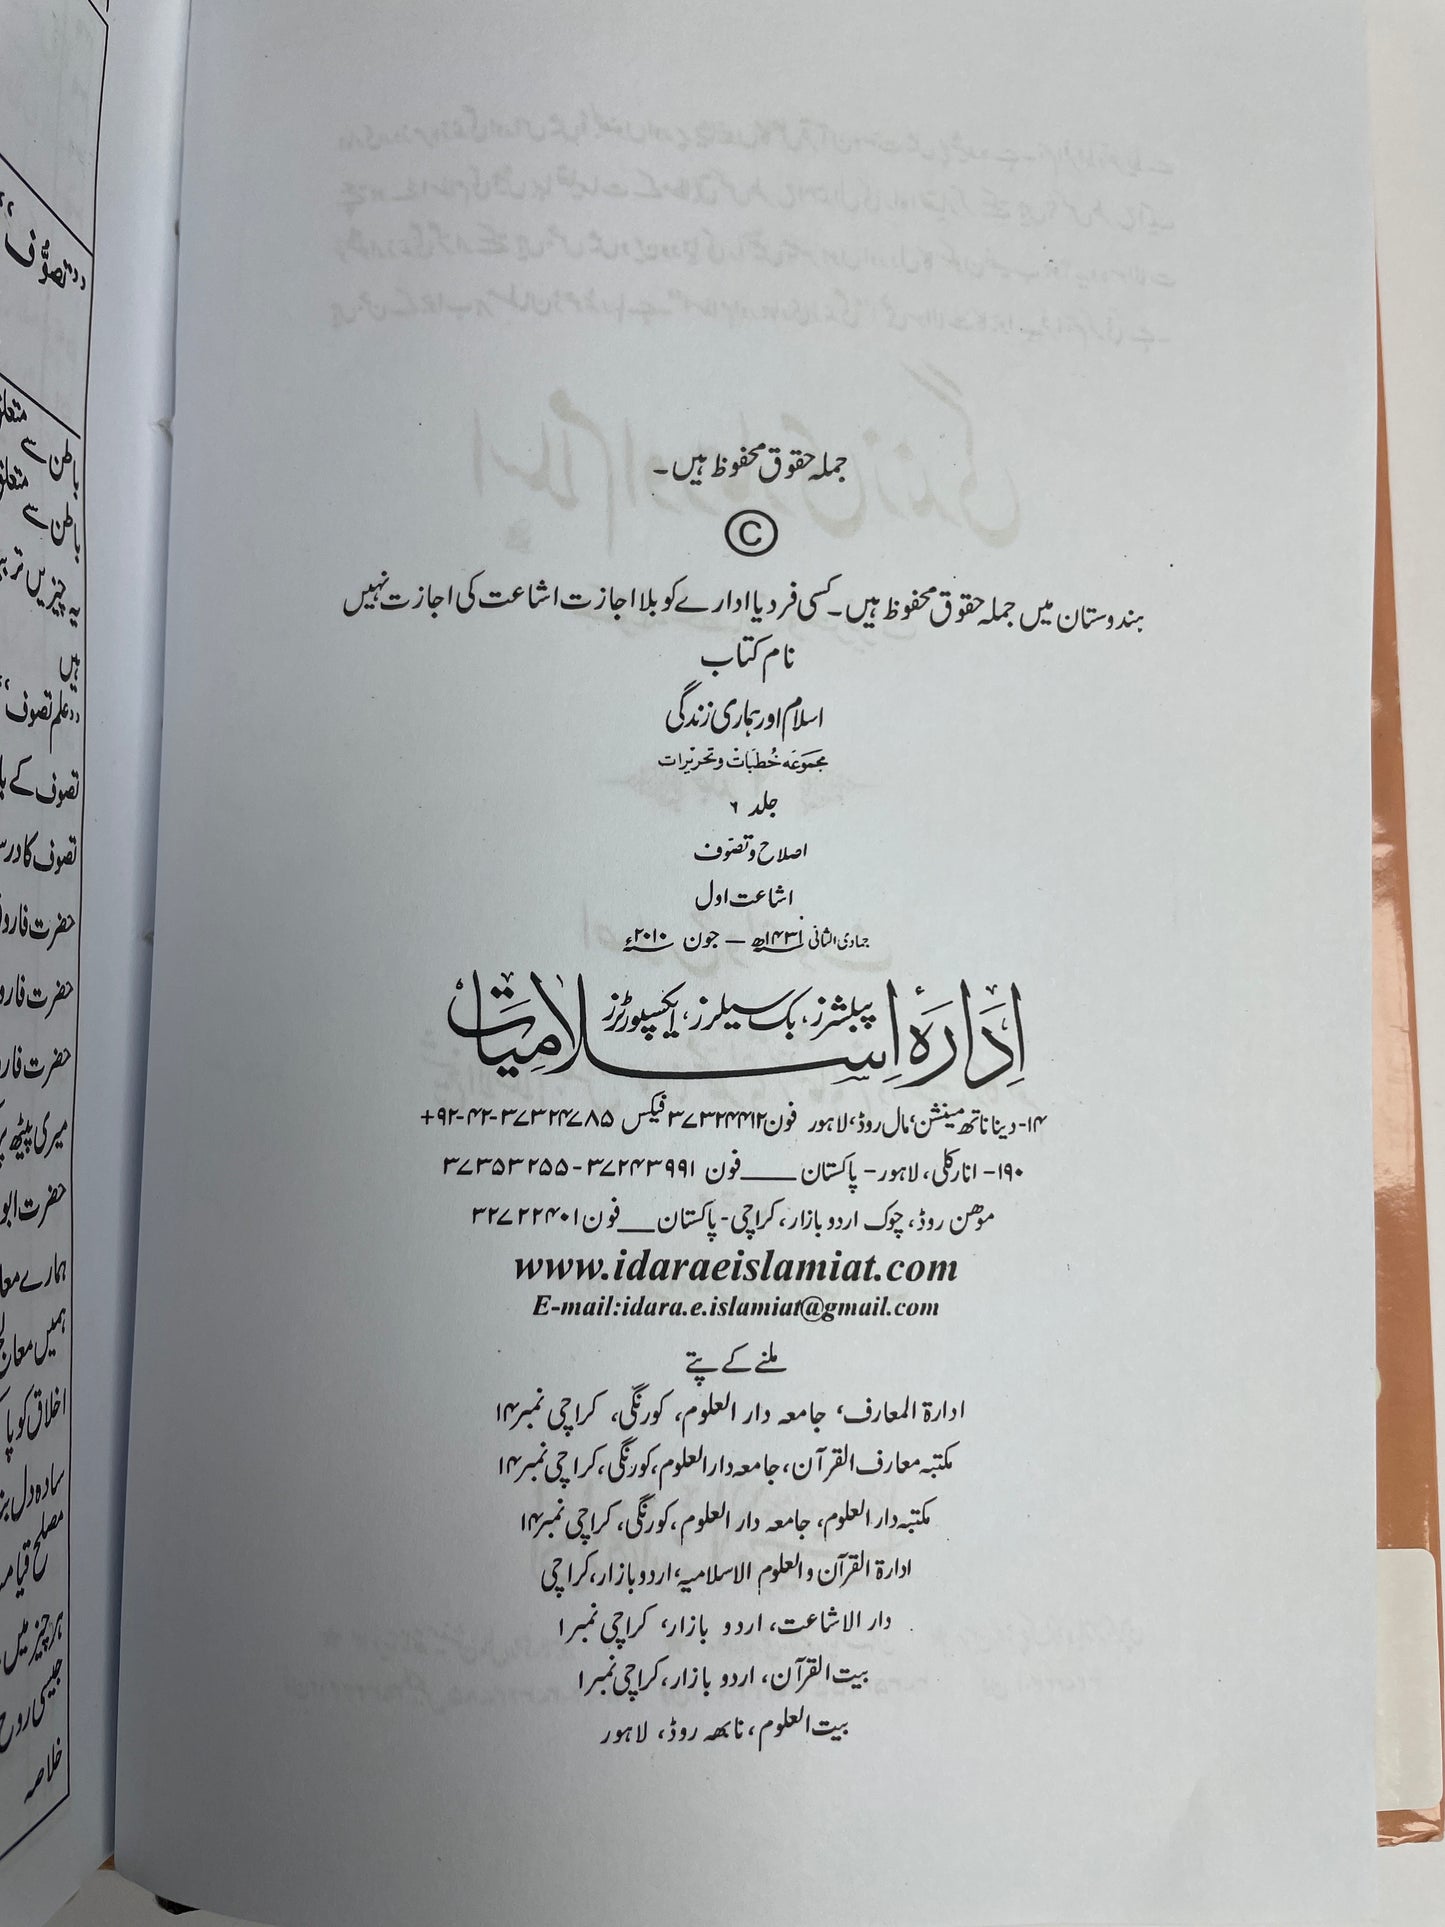 جملہ حقوق محفوظ ہیں۔
©
ہندوستان میں جملہ حقوق محفوظ ہیں۔ کسی فرد یا ادارے کو بلا اجازت اشاعت کی اجازت نہیں
نام کتاب
اسلام اور ہماری زندگی
مجموعہ خُطبات و تحریرات
جلد ۶
اصلاح و تصوّف
اشاعت اول
جمادی الثانی ۱۴۳۱ھ — جون ۲۰۱۰ء
پبلشرز، بک سیلرز، ایکسپورٹرز
اِدارۂ اِسلامیات
۱۴- دینا ناتھ مینشن، مال روڈ، لاہور فون ۳۷۳۲۴۴۱۲ فیکس ۳۷۳۲۴۷۸۵-۴۲-۹۲+
۱۹۰- انارکلی، لاہور- پاکستان ـــــ فون ۳۷۲۴۳۹۹۱-۳۷۳۵۳۲۵۵
موھن روڈ، چوک اردو بازار، کراچی- پاکستان ـــــ فون ۳۲۷۲۲۴۰۱
www.idaraeislamiat.com
E-mail:idara.e.islamiat@gmail.com
ملنے کے پتے
ادارۃ المعارف، جامعہ دار العلوم، کورنگی، کراچی نمبر ۱۴
مکتبہ معارف القرآن، جامعہ دار العلوم، کورنگی، کراچی نمبر ۱۴
مکتبہ دار العلوم، جامعہ دار العلوم، کورنگی، کراچی نمبر ۱۴
ادارۃ القرآن والعلوم الاسلامیہ، اردو بازار، کراچی
دار الاشاعت، اردو بازار، کراچی نمبر ۱
بیت القرآن، اردو بازار، کراچی نمبر ۱
بیت العلوم، نابھہ روڈ، لاہور
”تصوُّف“
باطن سے
باطن سے
یہ چیزیں
ہیں
”علم تصوف“
تصوف کے
تصوف کا
حضرت
حضرت
حضرت
میری پیٹھ
حضرت
ہمارے
ہمیں
اخلاق کو
سادہ دل
مصلح
ہر چیز میں
جیسی روح
خلاصہ